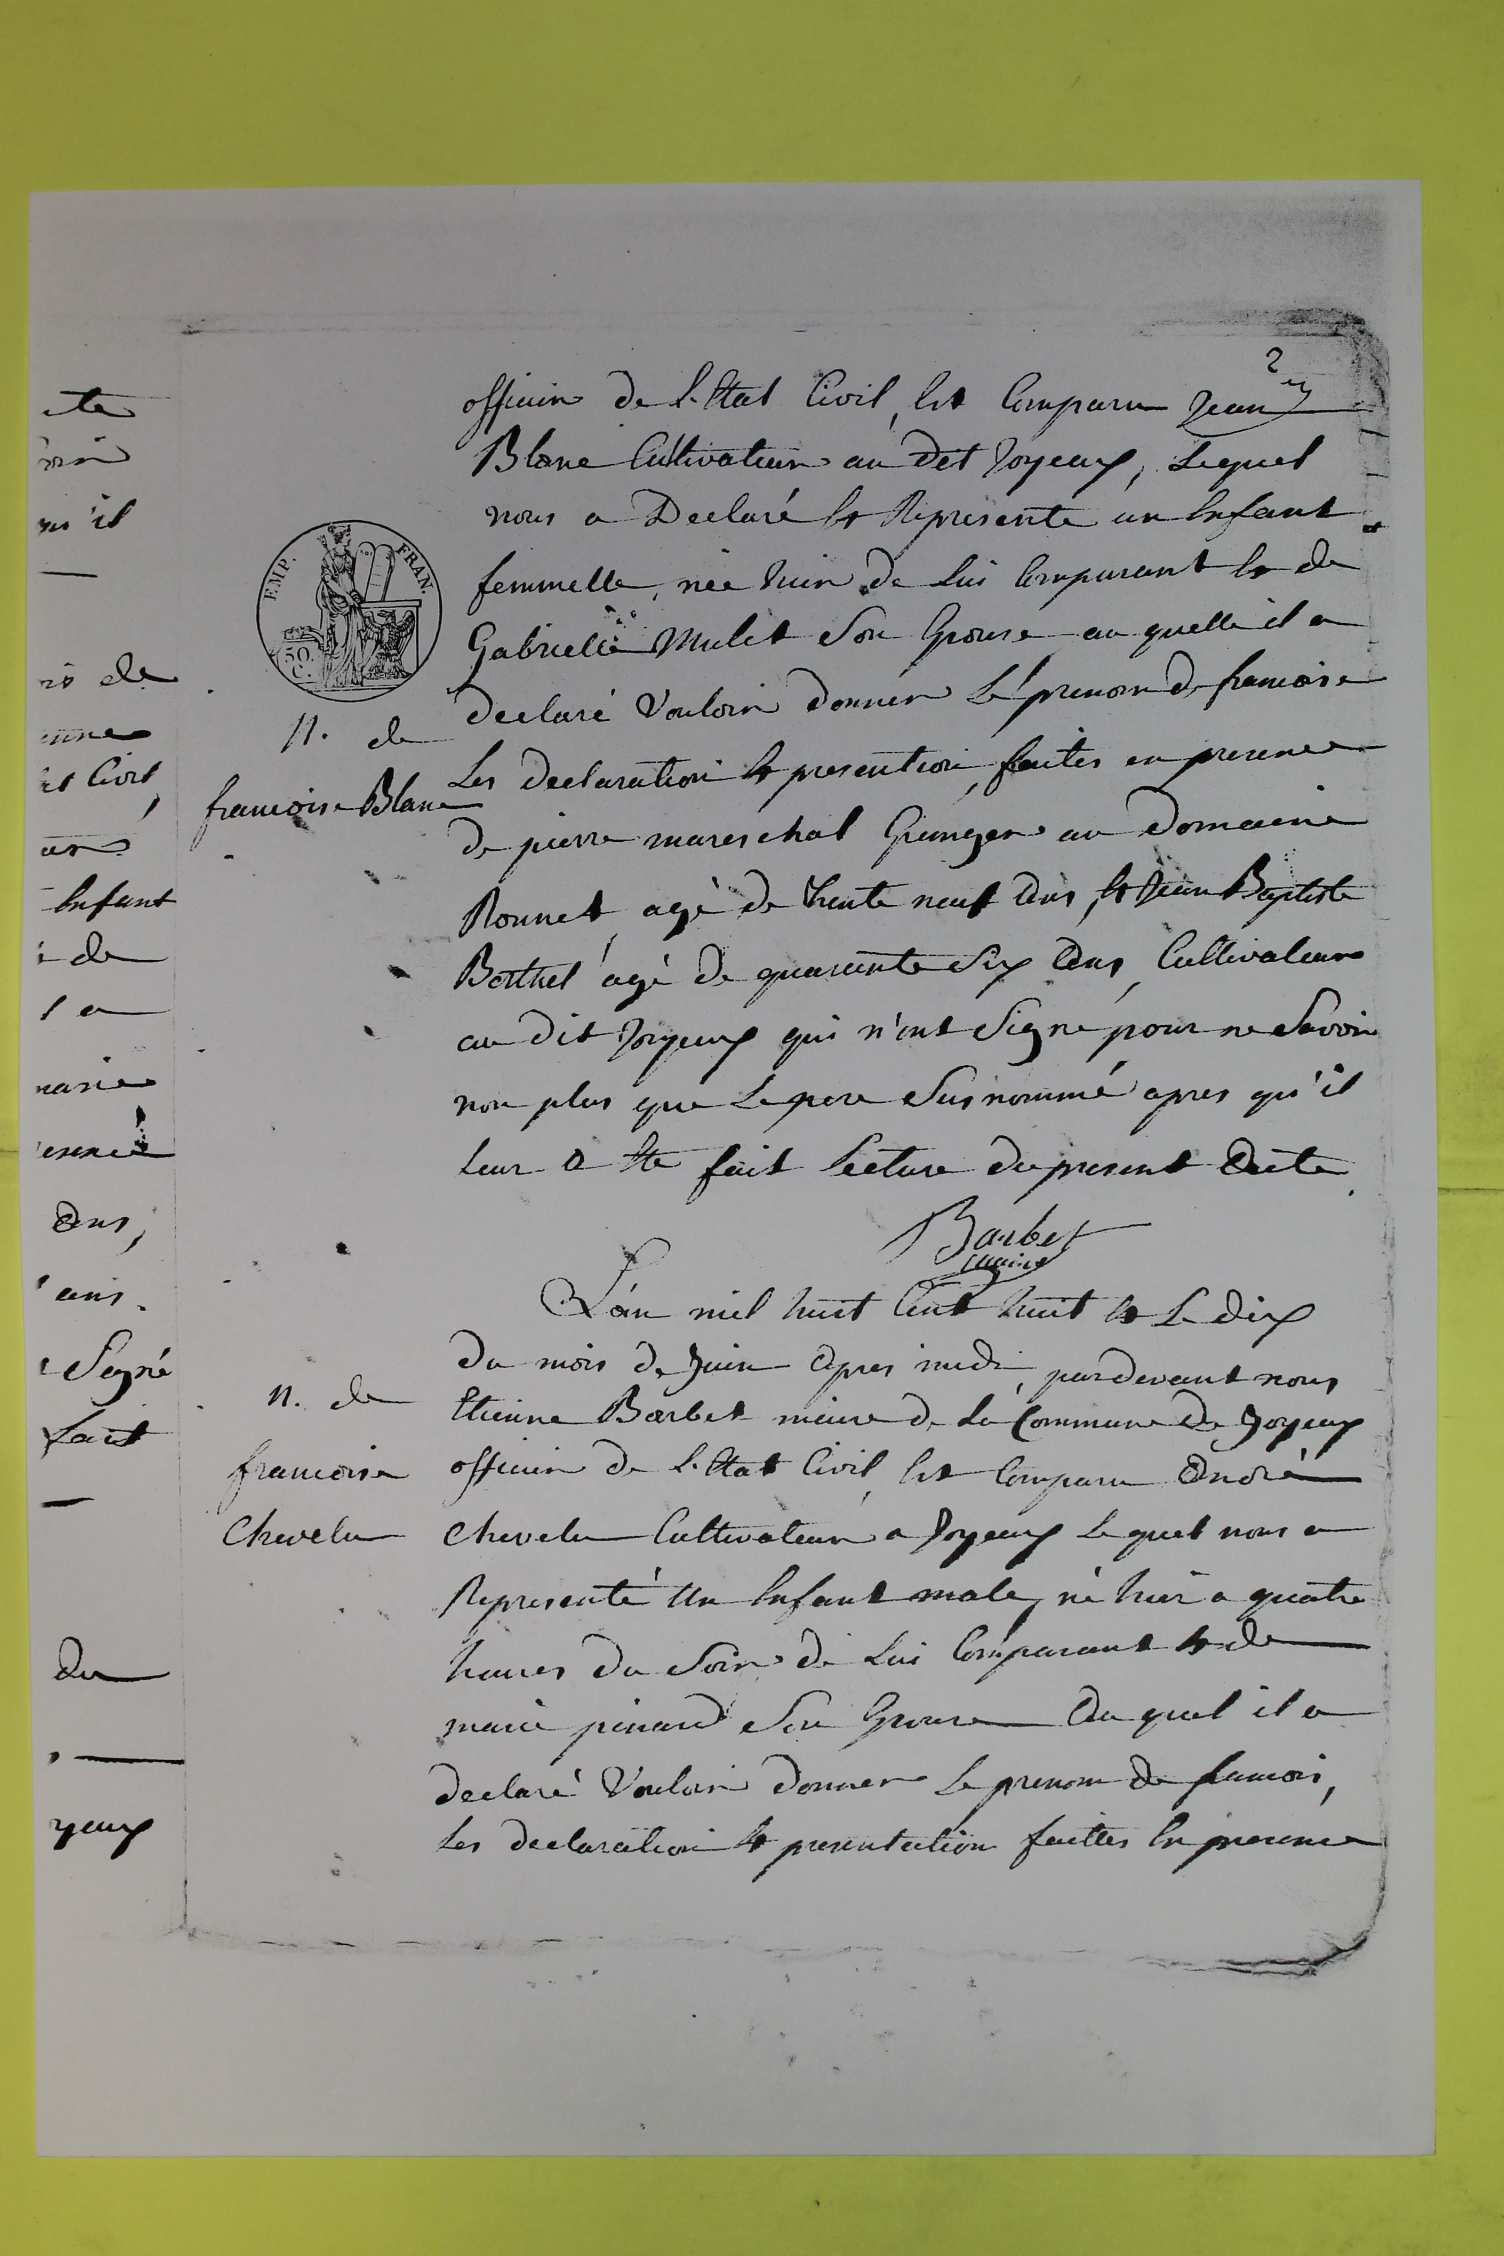 2
officier de l'Etat Civil, Est Comparu Jean
Blanc Cultivateur au dit Joyeux, Lequel
nous a Declaré Et Represente un Enfant
femmelle, née hier de lui Comparant Et de
Gabrielle Mulet Son Epouse au quelle il a
declaré Vouloir donner Le prenom de francoise
Les declaration Et presention, faites en presence
de pierre mareschal Granger au domaine
Ronnet agé de trente neuf Ans, Et Jean Baptiste
Botthel agé de quarante Six Ans, Cultivateur
au dit Joyeux qui n'ont Signé pour ne Savoir
non plus que Le pere Susnommé apres qu'il
leur a Ete fait lecture du present Acte
Barbet
maire
EMP. FRAN.
50
C.
N. de
francoise Blanc
L'an mil huit Cent huit Et Le dix
du mois de Juin Apres midi, pardevant nous
Etienne Barbet maire de la Commune de Joyeux
officier de l'Etat Civil, Est Comparu André
Chevelu Cultivateur a Joyeux Lequel nous a
Representé Un Enfant male, né hier a quatre
heures du Soir de Lui Comparant Et de
marie pinard Son Epouse Au quel il a
declaré Vouloir donner Le prenom de francois,
Les declaration Et presentation faittes En presence
N. de
francoise
Chevelu
qu'il
de
Civil,
Enfant
de
a
Ans,
ans.
Signé
fait
du
yeux